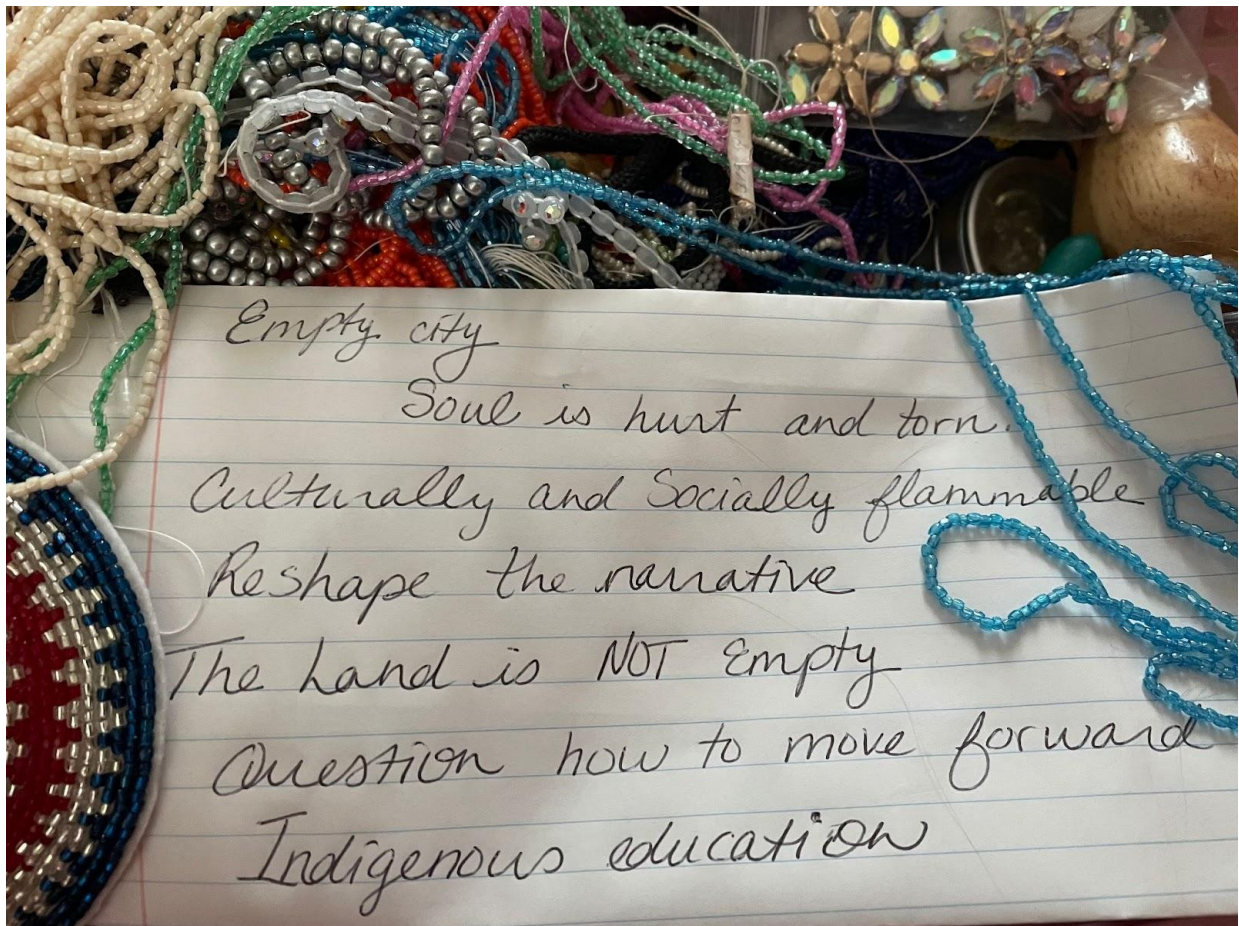 Empty city
Soul is hurt and torn.
Culturally and Socially flammable
Reshape the narrative
The Land is NOT Empty
Question how to move forward
Indigenous education